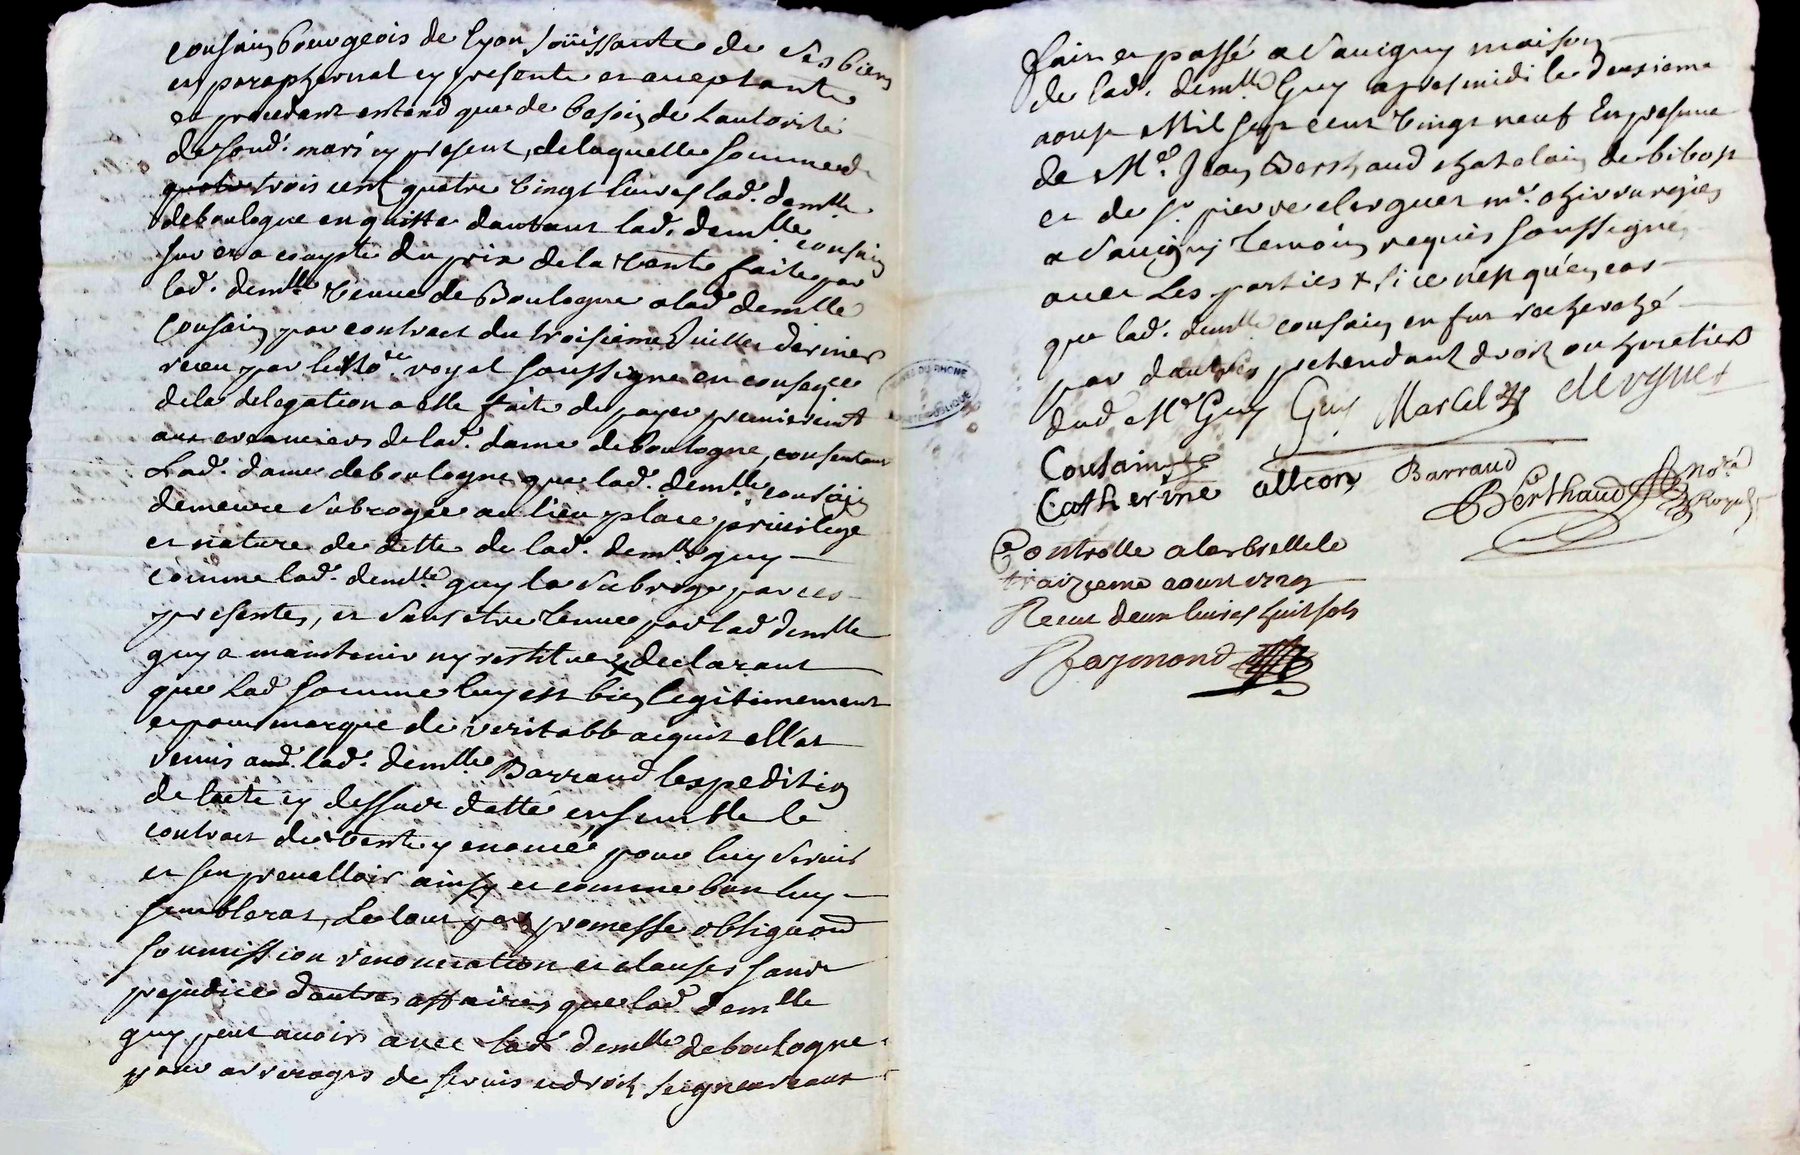 cousain bourgeois de lyon Joüissante de ses biens
en paraphernal cy presente et acceptante
et procedant entend que de besoin de lautorité
de sond. mary cy present, de laquelle somme de
trois cent quatre vingt livres lad. demlle
deboulogne en quitte dautant lad. demlle cousain
sur et a compte du prix de la vente faite par
lad. demlle veuve de Boulogne a lad demlle
Cousain par contract du troisieme Juillet dernier
receu par le Nore. royal soussigné en conseqce
de la delegation a elle faite de payer premierement
aux creanciers de lad. dame deBoulogne, consentant
Lad. dame deboulogne que lad. demlle cousain
demeure subrogée au lieu place privilege
et nature de dette de lad. demlle guy
comme lad. demlle guy la subroge par ces
presentes, et sans etre tenue par lad demlle
guy a maintenir ny restituer declarant
que lad somme luy est bien legitimement
et pour marque de veritable acquit ell'at
remis lad. demlle Barraud lexpedition
de lacte cy dessus datté ensemble le
contract de vente y enoncé pour luy servir
et sen prevalloir ainsy et comme bon luy
semblerat, Le tout par promesse obligaond
soumission renonciation et clauses sans
prejudice dautres affaires que lad. demlle
guy peut avoir avec lad demlle deboulogne
pour arrerages de servis et droits seigneuriaux
fait et passé a Savigny maison
de lad. demlle Guy apres midi le deuxieme
aoust Mil sept cent vingt neuf En presence
de Me. Jean Berthaud chatelain de bibost
et de sr pierre clerguet mr. chirurgien
a Savigny temoins requis soussignés
avec Les parties + si ce n'est qu'en cas
que lad. demlle cousain en fut recherché
par dautres pretendant droit ou heritiers
dud Mr Guy Guy Marcel clerguet
Cousain
Catherine alleon Barraud
Berthaud Nore Royal
Controllé a larbrelle le
traizieme aoust 1729
Receu deux livres huit sols
Raymond